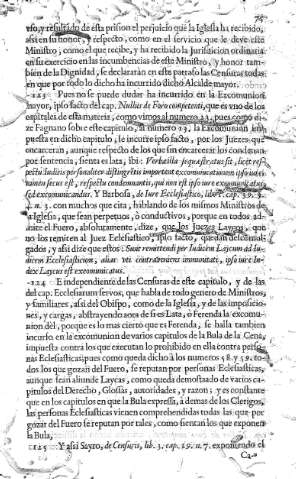 vso, y resultado de esta prision el perjuicio que la Iglesia ha recibido,
assi en su honor, y respecto, como en el servicio que le deve este
Ministro, como el que recibe, y ha recibido la Jurisdicion ordinaria
en su exercicio en las incumbencias de este Ministro, y honor tam-
bien de la Dignidad, se declararán en este parrafo las Censuras todas
en que por todo lo dicho ha incurrido dicho Alcalde mayor.
123 Pues no se puede dudar ha incurrido en la Excomunion
mayor, ipso facto del cap. Nullus de Foro competenti, que es vno de los
capitales de esta materia, como vimos al numero 22, pues como di-
ze Fagnano sobre este capitulo, al numero 23, la Excomunion im-
puesta en dicho capitulo, se incurre ipso facto, por los Juezes que
encarceran, aunque respecto de los que sin encarcerar los condenan
por sentencia, sienta es lata, ibi:
excomunicandus. Y Barbosa, de Iure Ecclesiastico, lib. cap. 39. §.
n. 3. con muchos que cita, hablando de los mismos Ministros de
la Iglesia, que sean perpetuos, ò conductivos, porque en todos ad-
mite el Fuero, absolutamente, dize, que los Juezes Laycos, que
no los remiten al Juez Eclesiastico, ipso facto, quedan descomul-
gados, y assi dize que estos: Sunt remittendi per Iudicem Laycum ad Iu-
dicem Ecclesiasticum, alias vti contraveniens immunitati, ipso iure In-
dex Laycus est excomunicatus.
124 E independente de las Censuras de este capitulo, y de las
del cap. Ecclesiarum servos, que habla de todo genero de Ministros,
y familiares, assi del Obispo, como de la Iglesia, y de las imposicio-
nes, y cargas, abstrayendo aora de si es Lata, ò Ferenda la excomu-
nion dèl, porque es lo mas cierto que es Ferenda, se halla tambien
incurso en la excomunion de varios capitulos de la Bula de la Cena,
impuesta contra los que executan lo prohibido en ella contra perso-
nas Eclesiasticas; pues como queda dicho à los numeros 58. y 59. to-
dos los que gozan del Fuero, se reputan por personas Eclesiasticas,
aunque sean aliunde Laycas, como queda demostrado de varios ca-
pitulos del Derecho, Glossas, autoridades, y razon; y es constante
que en los capitulos en que la Bula expressa, à demas de los Clerigos,
las personas Eclesiasticas vienen comprehendidas todas las que por
gozar del Fuero se reputan por tales, como sientan los que exponen
la Bula.
125 Y assi Sayro, de Censuris, lib. 3. cap. 19. n. 7. exponiendo el
Ca-